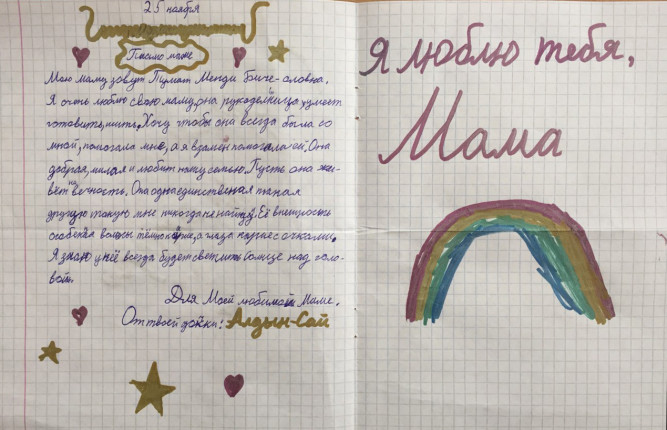 25 ноября
Письмо маме
Мою маму зовут Тулуш Менди Байыс-ооловна.
Я очень люблю свою маму, она рукодельница умеет
готовить, шить. Хочу чтобы она всегда была со
мной, помогала мне, а я взамен помогала ей. Она
добрая, милая и любит нашу семью. Пусть она жи-
вёт вечность. Она одна единственная такая
другую такую мне никогда не найду. Её внешность
особеная волосы тёмно карие, а глаза карие с очками.
Я знаю у неё всегда будет светить солнце над голо-
вой.
Для Моей любимой Маме.
От твоей дочки: Алдын-Сай
Я люблю тебя,
Мама